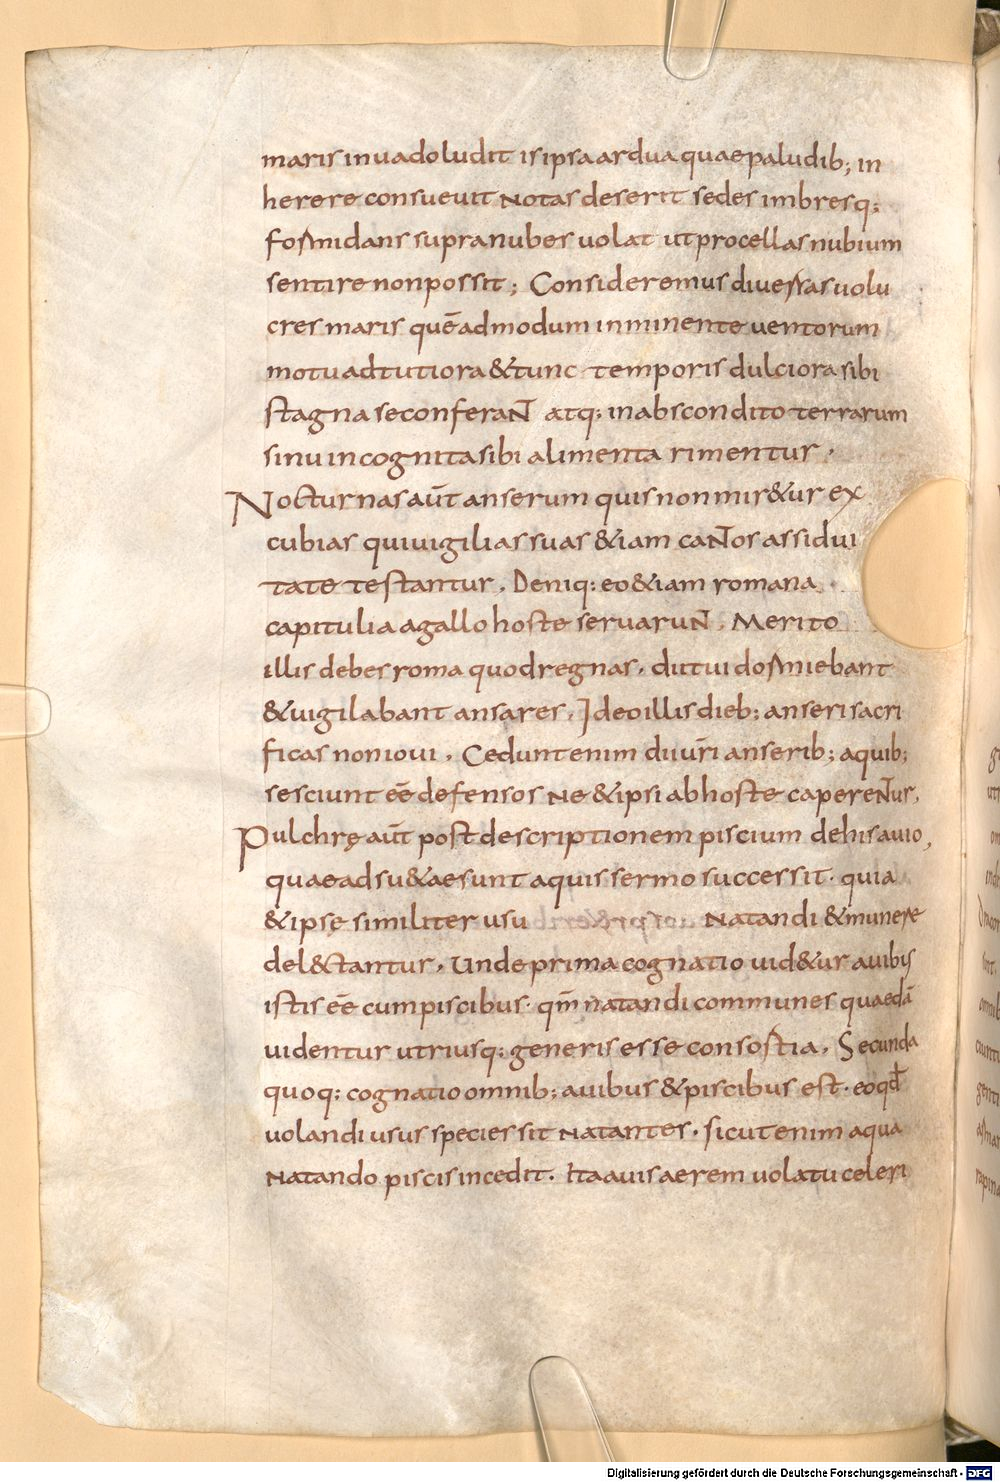 maris inuadoludit is ipsa ardua quae paludib; in
herere consueuit notas deserit sedes imbresq;
formidans supra nubes uolat ut procellas nubium
sentire non possit; Consideremus diuersas uolu
cres maris quēadmodum inminente uentorum
motu ad tutiora & tunc temporis dulciora sibi
stagna se conferant atq; in abscondito terrarum
sinu incognita sibi alimenta rimentur.
Nocturnas aūt anserum quis non mir&ur ex
cubias qui uigilias suas &iam cantos assidui
tate testantur. Deniq: eo &iam romana
capitulia a gallo hoste seruarunt. Merito
illis debes roma quod regnas. dii tui dormiebant
& uigilabant ansares. Ideo illis dieb; anseri sacri
ficas non ioui. Cedunt enim dii uri anserib; a quib;
se sciunt ēē defensos ne & ipsi ab hoste caperentur.
Pulchrę aūt post descriptionem piscium de his auio,
quae adsu&ae sunt aquis sermo successit. quia
& ipsę similiter usu natandi & munere
del&tantur. Unde prima cognatio uid&ur auibis
istis ēē cum piscibus. qm̄ natandi communes quaedā
uidentur utriusq; generis esse consortia. Secunda
quoq: cognatio omnib; auibus & piscibus est. eo qđ
uolandi usus species sit natantes. sicut enim aqua
natando piscis incedit. Ita auis aerem uolatu celeri
Digitalisierung gefördert durch die Deutsche Forschungsgemeinschaft - DFG